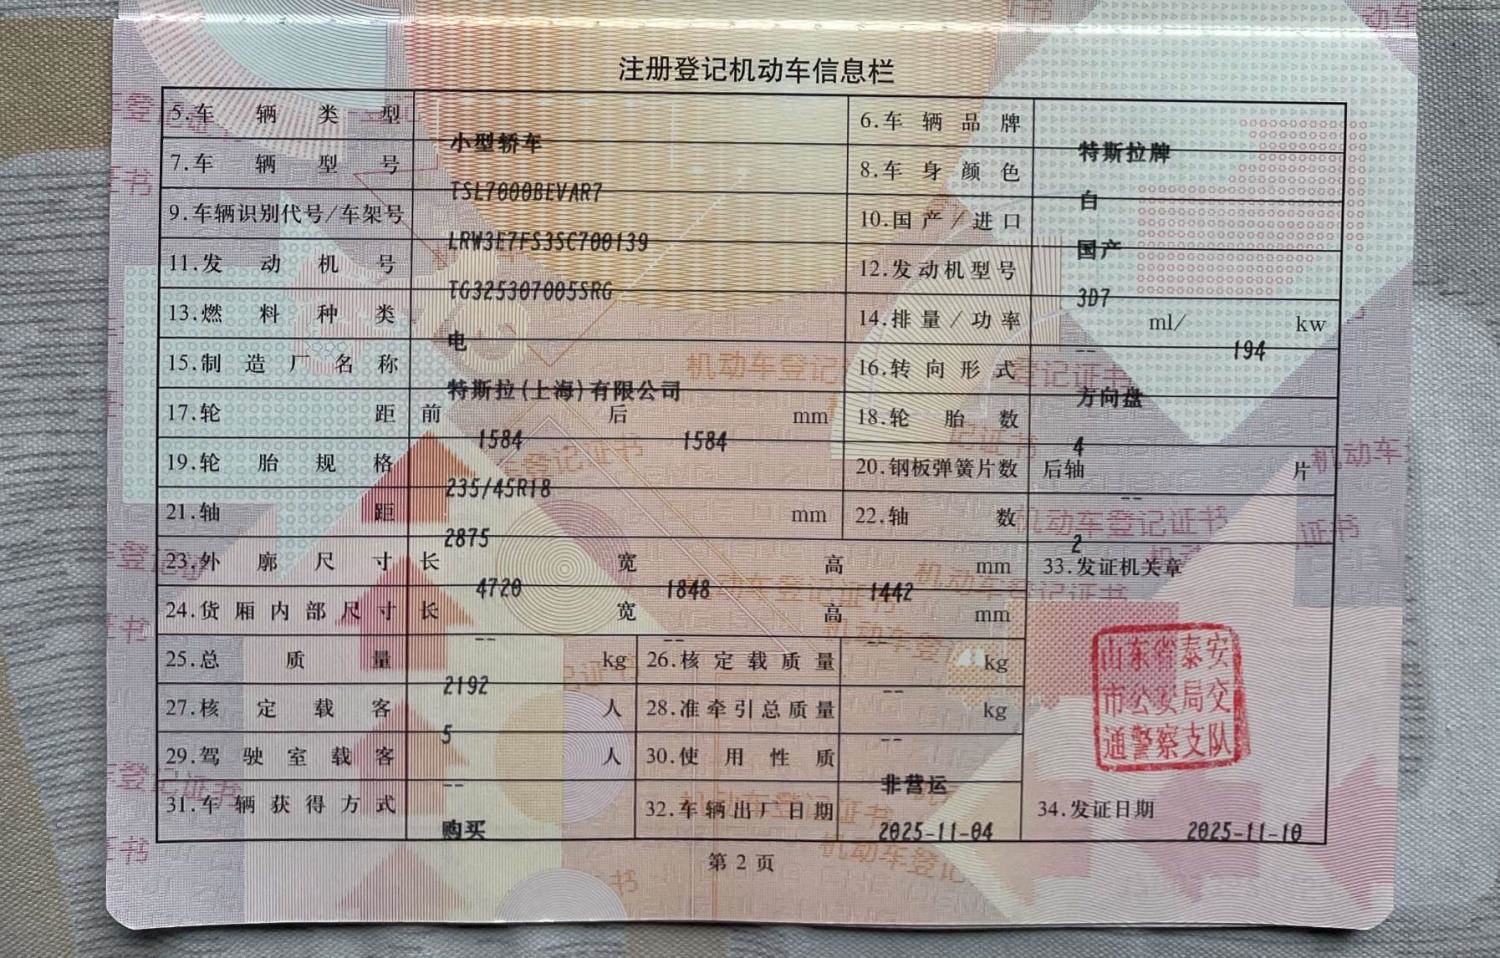 注册登记机动车信息栏
5.车辆类型 小型轿车 6.车辆品牌 特斯拉牌
7.车辆型号 TSL7000BEVAR7 8.车身颜色 白
9.车辆识别代号/车架号 LRW3E7FS3SC700139 10.国产/进口 国产
11.发动机号 TG325307005SRG 12.发动机型号 3D7
13.燃料种类 电 14.排量/功率 -- ml/ 194 kw
15.制造厂名称 特斯拉(上海)有限公司 16.转向形式 方向盘
17.轮距 前 1584 后 1584 mm 18.轮胎数 4
19.轮胎规格 235/45R18 20.钢板弹簧片数 后轴 -- 片
21.轴距 2875 mm 22.轴数 2
23.外廓尺寸 长 4720 宽 1848 高 1442 mm 33.发证机关章
24.货厢内部尺寸 长 -- 宽 -- 高 -- mm
山东省泰安
市公安局交
通警察支队
25.总质量 2192 kg 26.核定载质量 -- kg
27.核定载客 5 人 28.准牵引总质量 -- kg
29.驾驶室载客 -- 人 30.使用性质 非营运
31.车辆获得方式 购买 32.车辆出厂日期 2025-11-04 34.发证日期 2025-11-10
第 2 页